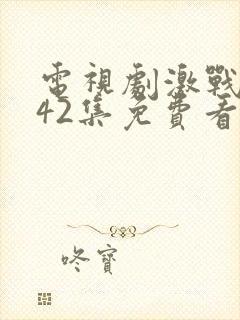 電視劇激戰
42集免費看
咚寶